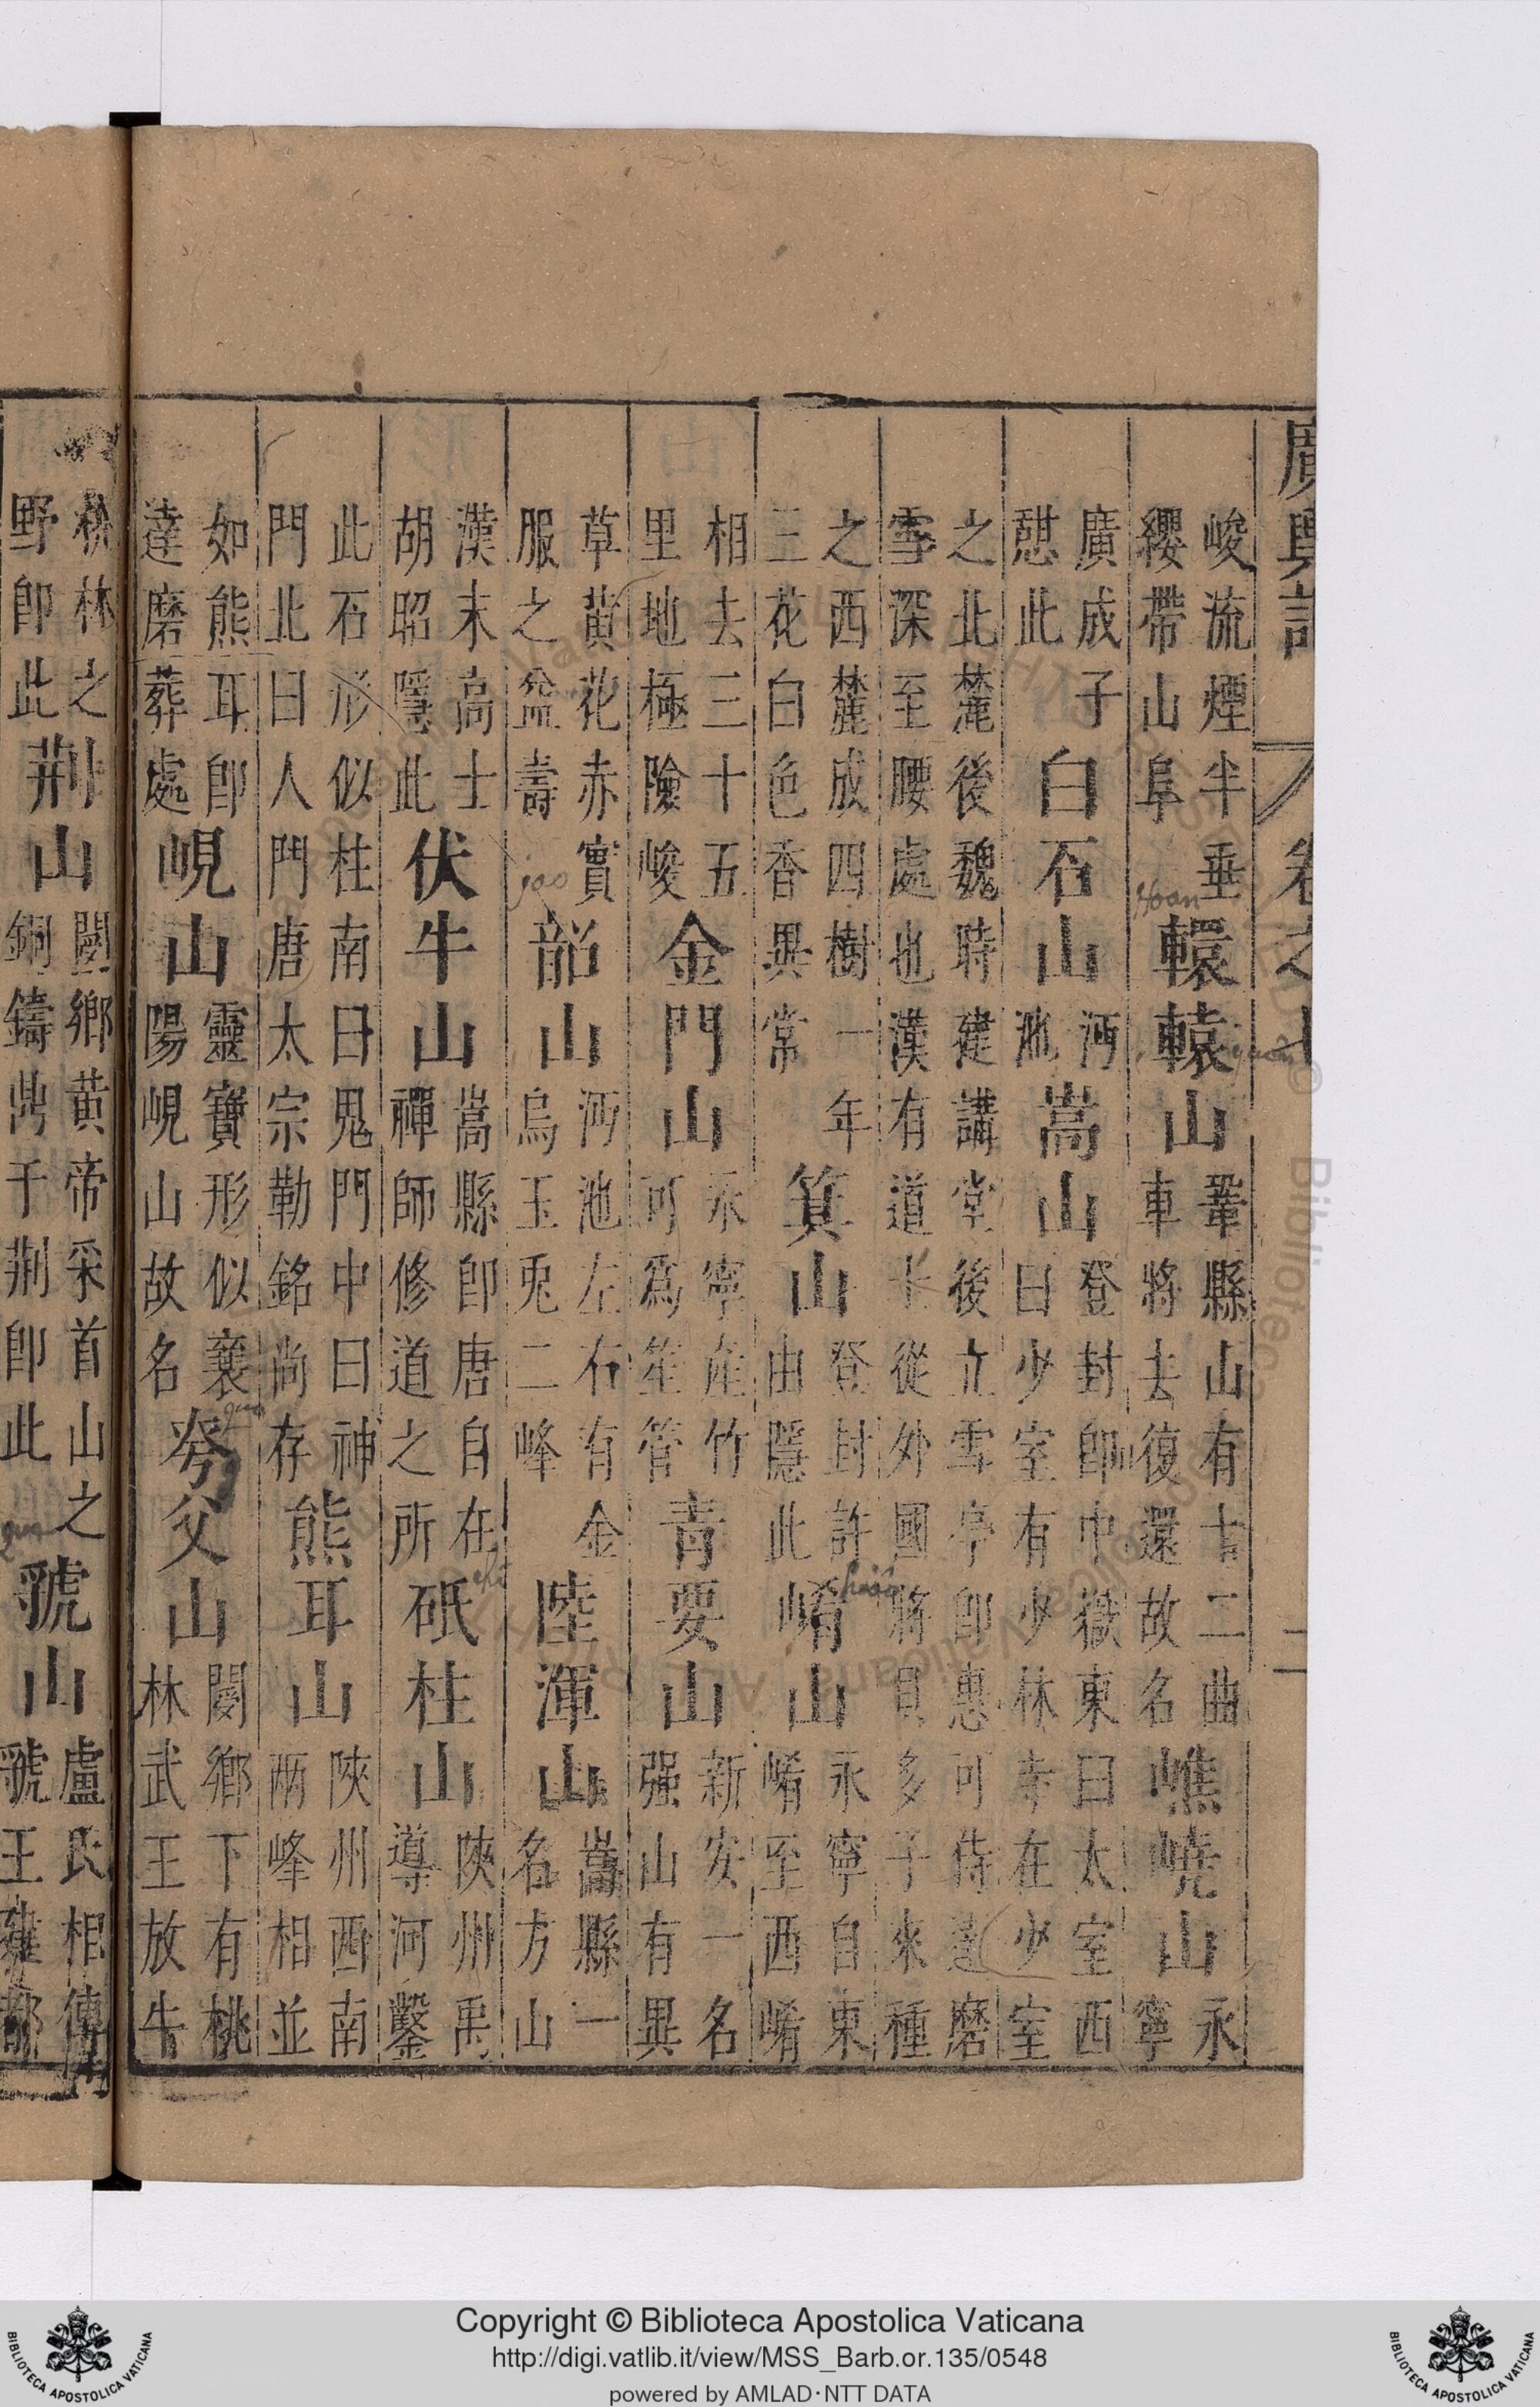 廣輿記 卷之七 二
峻流煙半垂
纓帶山阜
轘轅山
鞏縣山有十二曲
車將去復還故名
嶕嶢山
永
寧
廣成子
憇此
白石山
沔
池
嵩山
登封卽中嶽東曰太室西
曰少室有少林寺在少室
之北麓後魏時建講堂後立雪亭卽惠可侍達磨
雪深至腰處也漢有道士從外國將貝多子來種
之西麓成四樹一年
三花白色香異常
箕山
登封許
由隱此
崤山
永寧自東
崤至西崤
相去三十五
里地極險峻
金門山
永寧產竹
可爲笙管
青要山
新安一名
强山有異
草黃花赤實
服之益壽
韶山
沔池左右有金
烏玉兎二峰
陸渾山
嵩縣一
名方山
漢末高士
胡昭隱此
伏牛山
嵩縣卽唐自在
禪師修道之所
砥柱山
陝州禹
導河鑿
此石形似柱南曰鬼門中曰神
門北曰人門唐太宗勒銘尚存
熊耳山
陝州西南
兩峰相並
如熊耳卽
達磨葬處
峴山
靈寶形似襄
陽峴山故名
夸父山
閿鄉下有桃
林武王放牛
林之
野卽此
荆山
閿鄉黃帝采首山之
銅鑄鼎于荆卽此
虢山
盧氏相傳
虢王
Hoan
hiao
jao
chi
Copyright © Biblioteca Apostolica Vaticana
http://digi.vatlib.it/view/MSS_Barb.or.135/0548
powered by AMLAD·NTT DATA
BIBLIOTECA APOSTOLICA VATICANA
BIBLIOTECA APOSTOLICA VATICANA